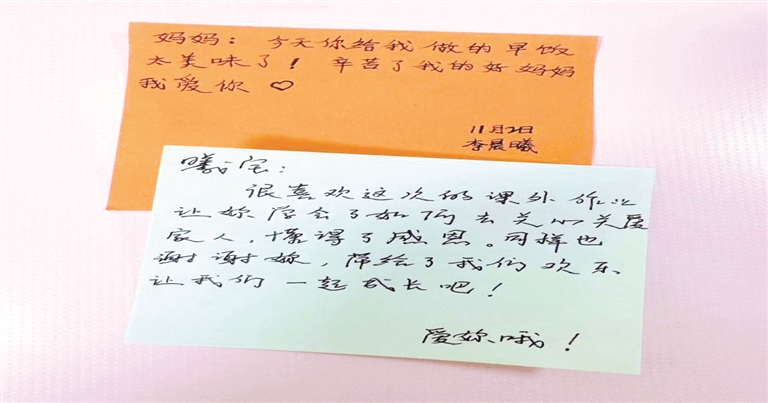 妈妈：今天你给我做的早饭
太美味了！辛苦了我的好妈妈
我爱你♡
11月2日
李晨曦
曦宝：
很喜欢这次的课外作业
让妳学会了如何去关心关爱
家人，懂得了感恩。同样也
谢谢妳，带给了我们欢乐
让我们一起成长吧！
爱妳哦！